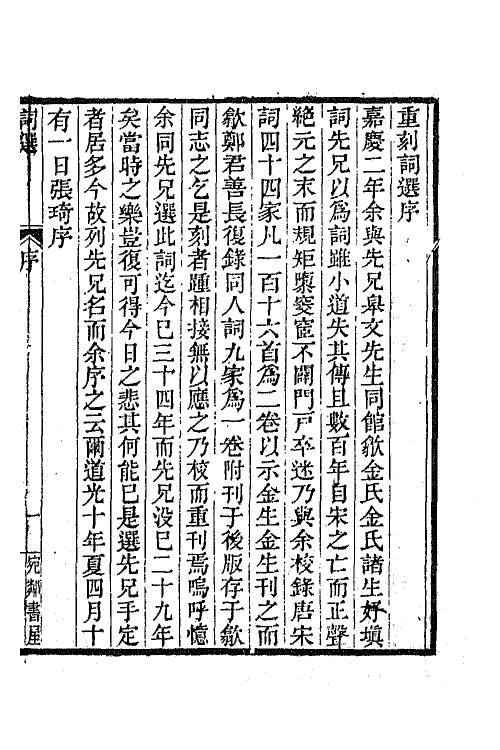 重刻詞選序
嘉慶二年余與先兄臯文先生同館歙金氏金氏諸生好塡
詞先兄以爲詞雖小道失其傳且數百年自宋之亡而正聲
絕元之末而規矩隳窔宧不闢門戶卒迷乃與余校錄唐宋
詞四十四家凡一百十六首爲二卷以示金生金生刊之而
歙鄭君善長復錄同人詞九家爲一卷附刊于後版存于歙
同志之乞是刻者踵相接無以應之乃校而重刊焉嗚呼憶
余同先兄選此詞迄今巳三十四年而先兄没巳二十九年
矣當時之樂豈復可得今日之悲其何能巳是選先兄手定
者居多今故列先兄名而余序之云爾道光十年夏四月十
有一日張琦序
詞選 序 一 宛鄰書屋